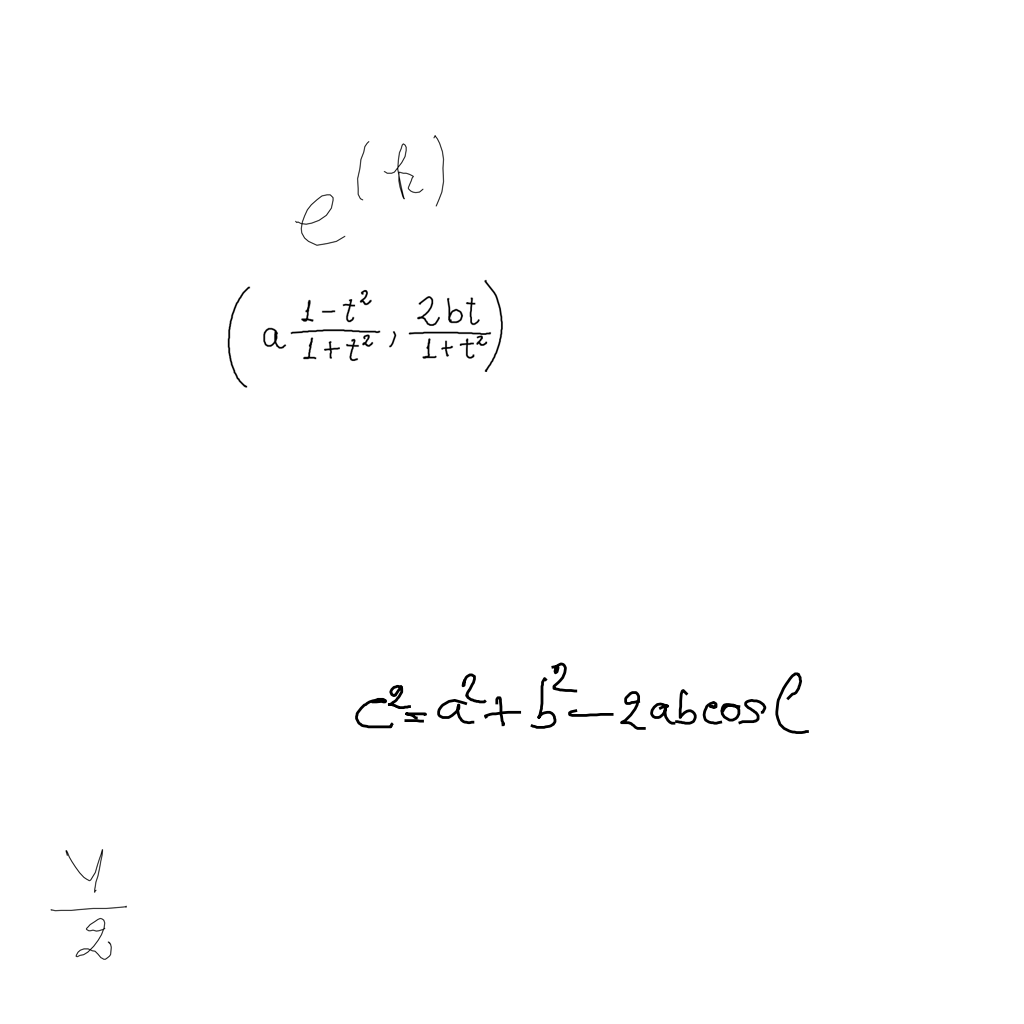 e^{(k)}
\left(a\frac{1-t^2}{1+t^2}, \frac{2bt}{1+t^2}\right)
c^2=a^2+b^2-2ab\cos C
\frac{4}{2}